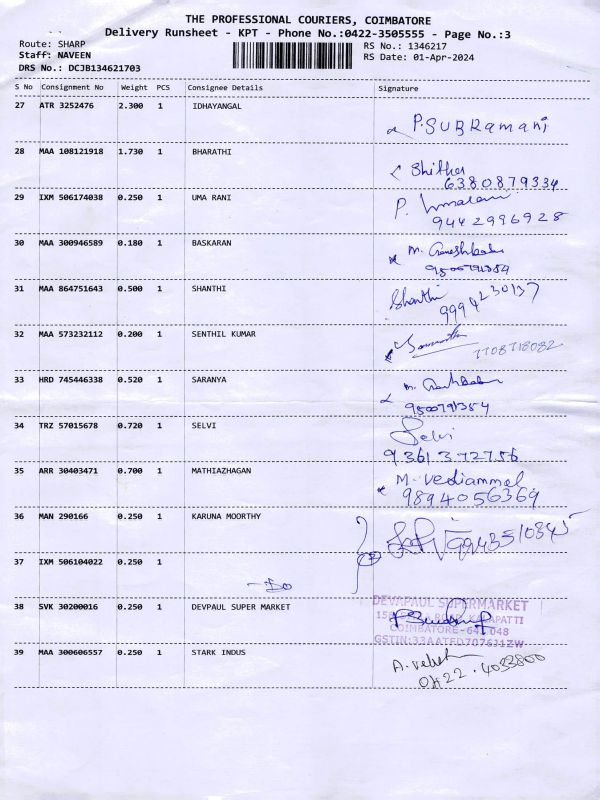 THE PROFESSIONAL COURIERS, COIMBATORE
Delivery Runsheet - KPT - Phone No.:0422-3505555 - Page No.:3
Route: SHARP
RS No.: 1346217
Staff: NAVEEN
RS Date: 01-Apr-2024
DRS No.: DCJB134621703
S No Consignment No Weight PCS Consignee Details Signature
27 ATR 3252476 2.300 1 IDHAYANGAL
P. SUBRamani
28 MAA 108121918 1.730 1 BHARATHI
6380879334
29 IXM 506174038 0.250 1 UMA RANI
P. Umarani
9442996928
30 MAA 300946589 0.180 1 BASKARAN
M. Ganeshbabu
31 MAA 864751643 0.500 1 SHANTHI
Shanthi
9994230137
32 MAA 573232112 0.200 1 SENTHIL KUMAR
7708718082
33 HRD 745446338 0.520 1 SARANYA
9500791354
34 TRZ 57015678 0.720 1 SELVI
Selvi
9361372756
35 ARR 30403471 0.700 1 MATHIAZHAGAN
M. Vediammal
9894056369
36 MAN 290166 0.250 1 KARUNA MOORTHY
9943510845
37 IXM 506104022 0.250 1
- Do
38 SVK 30200016 0.250 1 DEVPAUL SUPER MARKET
DEVAPAUL SUPERMARKET
COIMBATORE-641 048
39 MAA 300606557 0.250 1 STARK INDUS
0422-4033800